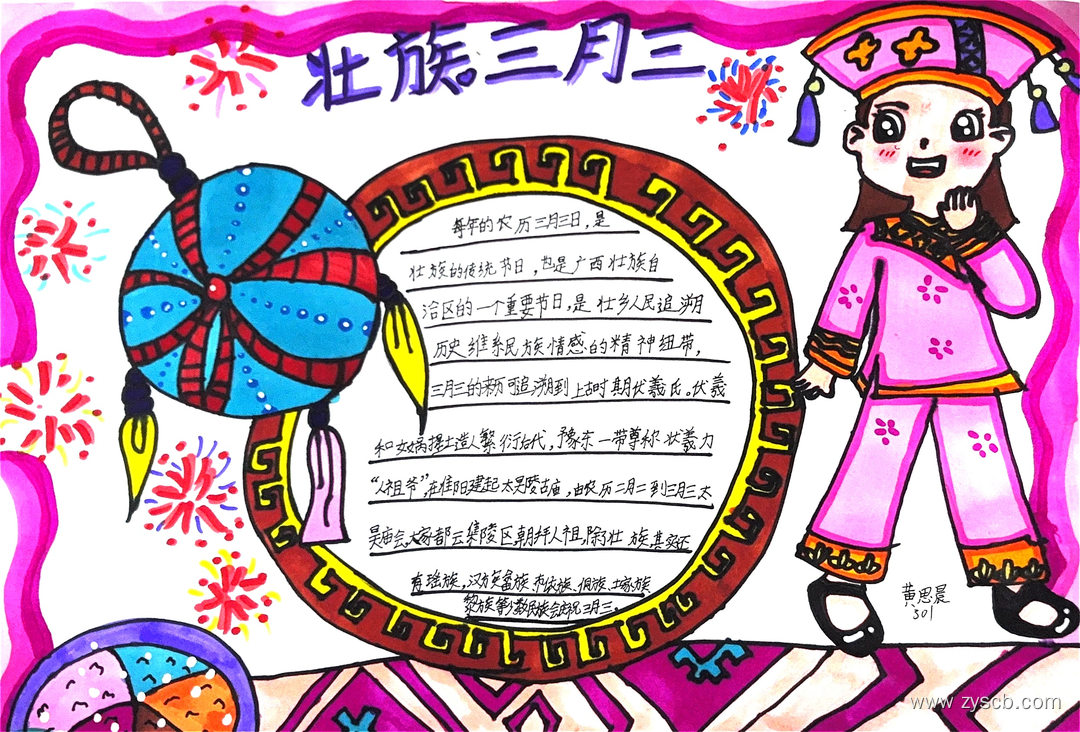 壮族三月三
每年的农历三月三日，是
壮族的传统节日，也是广西壮族自
治区的一个重要节日，是壮乡人民追溯
历史维系民族情感的精神纽带，
三月三的来历可追溯到上古时期伏羲氏。伏羲
和女娲捏土造人繁衍后代，豫东一带尊称伏羲为
“人祖爷”，在淮阳建起太昊陵古庙，由农历二月二到三月三太
昊庙会，大家都云集陵区，朝拜人祖，除了壮族，其实还
有瑶族，汉族，畲族
侗族、土家族
黎族等少数民族会庆祝三月三。
黄思晨
301
www.zyscb.com